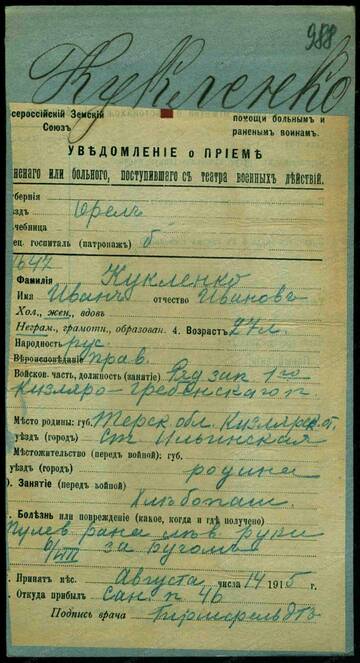 988
Кукленко
сероссiйскiй Земскiй
Союзъ
помощи больнымъ и
раненымъ воинамъ.
УВѢДОМЛЕНIЕ о ПРIЕМѢ
неннаго или больного, поступившаго съ театра военныхъ дѣйствiй.
бернiя
здъ Орелъ
чебница
ец. госпиталь (патронажъ) б
1647
Фамилiя Кукленко
Имя Иванъ отчество Ивановъ
Хол., жен., вдовъ
Неграм., грамотн., образован. 4. Возрастъ 27 л.
Народность рус
Вѣроисповѣданiе прав.
Войсков. часть, должность (занятiе) Ряд зап 1го
Кизляро-Гребенскаго п.
Мѣсто родины: губ. Терск. обл. Кизлярск. от.
уѣздъ (городъ) ст. Ильинская
Мѣстожительство (передъ войной): губ.
уѣздъ (городъ) родина
). Занятiе (передъ войной)
Хлѣбопаш.
. Болѣзнь или поврежденiе (какое, когда и гдѣ получено)
Пулев. рана лѣв. руки
6/VIII за Бугомъ
. Принятъ мѣс. Августа числа 14 1915 г.
. Откуда прибылъ сан. п. 46
Подпись врача